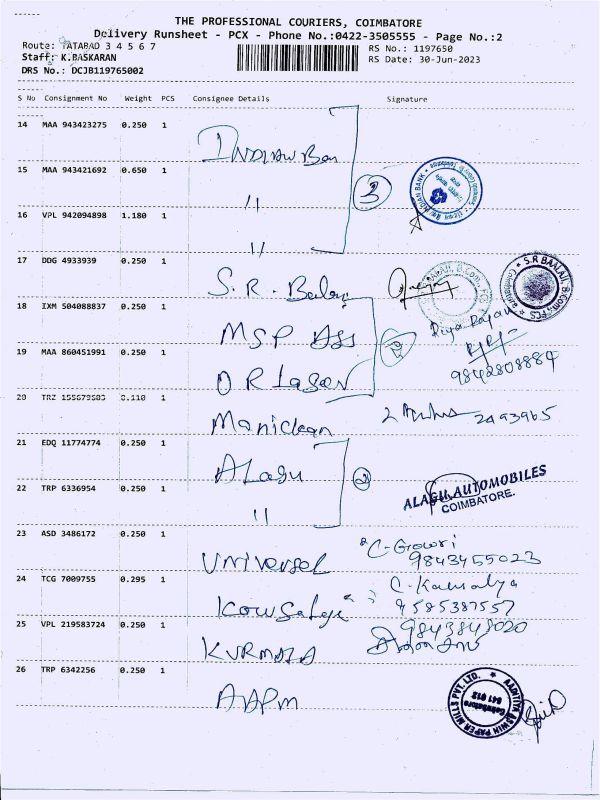 THE PROFESSIONAL COURIERS, COIMBATORE
Delivery Runsheet - PCX - Phone No.:0422-3505555 - Page No.:2
Route: TATABAD 3 4 5 6 7
RS No.: 1197650
Staff: K.BASKARAN
RS Date: 30-Jun-2023
DRS No.: DCJB119765002
S No Consignment No Weight PCS Consignee Details Signature
14 MAA 943423275 0.250 1
15 MAA 943421692 0.650 1
"
3
INDIAN BANK
16 VPL 942094898 1.180 1
"
17 DDG 4933939 0.250 1
S.R.
S.R BAALAJI, B.Com.,FCS
18 IXM 504088837 0.250 1
MSP Ass
Riya Rajan
19 MAA 860451991 0.250 1
9842808884
20 TRZ 155679603 0.110 1
2493965
21 EDQ 11774774 0.250 1
ALagu
2
22 TRP 6336954 0.250 1
"
ALAGU AUTOMOBILES
COIMBATORE.
23 ASD 3486172 0.250 1
Universal
C-Gowri
9843455023
24 TCG 7009755 0.295 1
C. Kausalya
9585387557
25 VPL 219583724 0.250 1
9843848020
26 TRP 6342256 0.250 1
AAPM
AADITYA ASWIN PAPER MILLS PVT. LTD.
Coimbatore
641 012